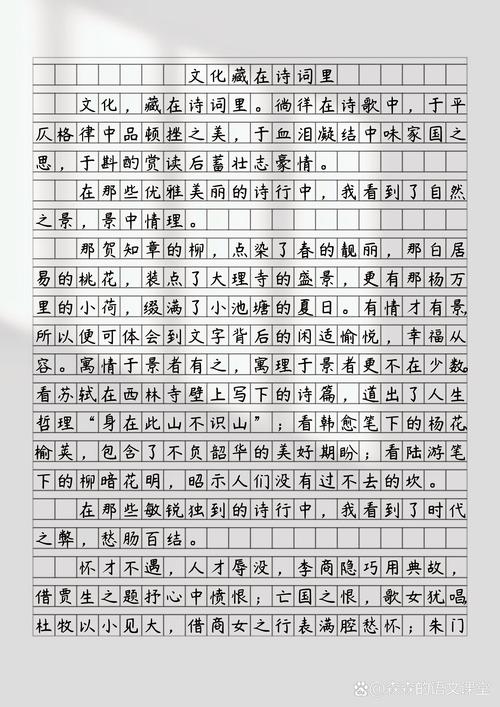 文化藏在诗词里
文化，藏在诗词里。徜徉在诗歌中，于平
仄格律中品顿挫之美，于血泪凝结中味家国之
思，于斟酌赏读后蓄壮志豪情。
在那些优雅美丽的诗行中，我看到了自然
之景，景中情理。
那贺知章的柳，点染了春的靓丽，那白居
易的桃花，装点了大理寺的盛景，更有那杨万
里的小荷，缀满了小池塘的夏日。有情才有景，
所以便可体会到文字背后的闲适愉悦，幸福从
容。寓情于景者有之，寓理于景者更不在少数。
看苏轼在西林寺壁上写下的诗篇，道出了人生
哲理“身在此山不识山”；看韩愈笔下的杨花
榆荚，包含了不负韶华的美好期盼；看陆游笔
下的柳暗花明，昭示人们没有过不去的坎。
在那些敏锐独到的诗行中，我看到了时代
之弊，愁肠百结。
怀才不遇，人才辱没，李商隐巧用典故，
借贾生之题抒心中愤恨；亡国之恨，歌女犹唱，
杜牧以小见大，借商女之行表满腔愁怀；朱门
@森森的语文课堂